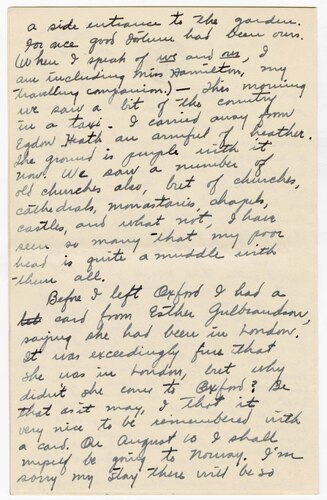 a side entrance to the garden.
For once good fortune had been ours.
(When I speak of us and our, I
am including Miss Hamilton, my
travelling companion.) — This morning
we saw a bit of the country
in a taxi. I carried away from
Egdon Heath an armful of heather.
The ground is purple with it
now. We saw a number of
old churches also, but of churches,
cathedrals, monastaries, chapels,
castles, and what not, I have
seen so many that my poor
head is quite a muddle with
them all.
Before I left Oxford I had a
card from Esther Gulbrandson,
saying she had been in London.
It was exceedingly fine that
she was in London, but why
didn't she come to Oxford? Be
that as it may, I tho't it
very nice to be remembered with
a card. On August 10 I shall
myself be going to Norway. I'm
sorry my stay there will be so